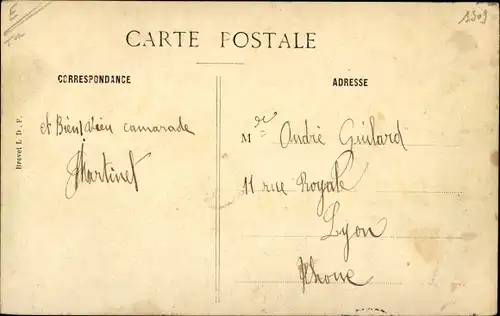 1509
CARTE POSTALE
CORRESPONDANCE
ADRESSE
et Bien camarade
Martinet
M André Guilard
11 rue Royale
Lyon
Rhone
Brevet L. D. F.